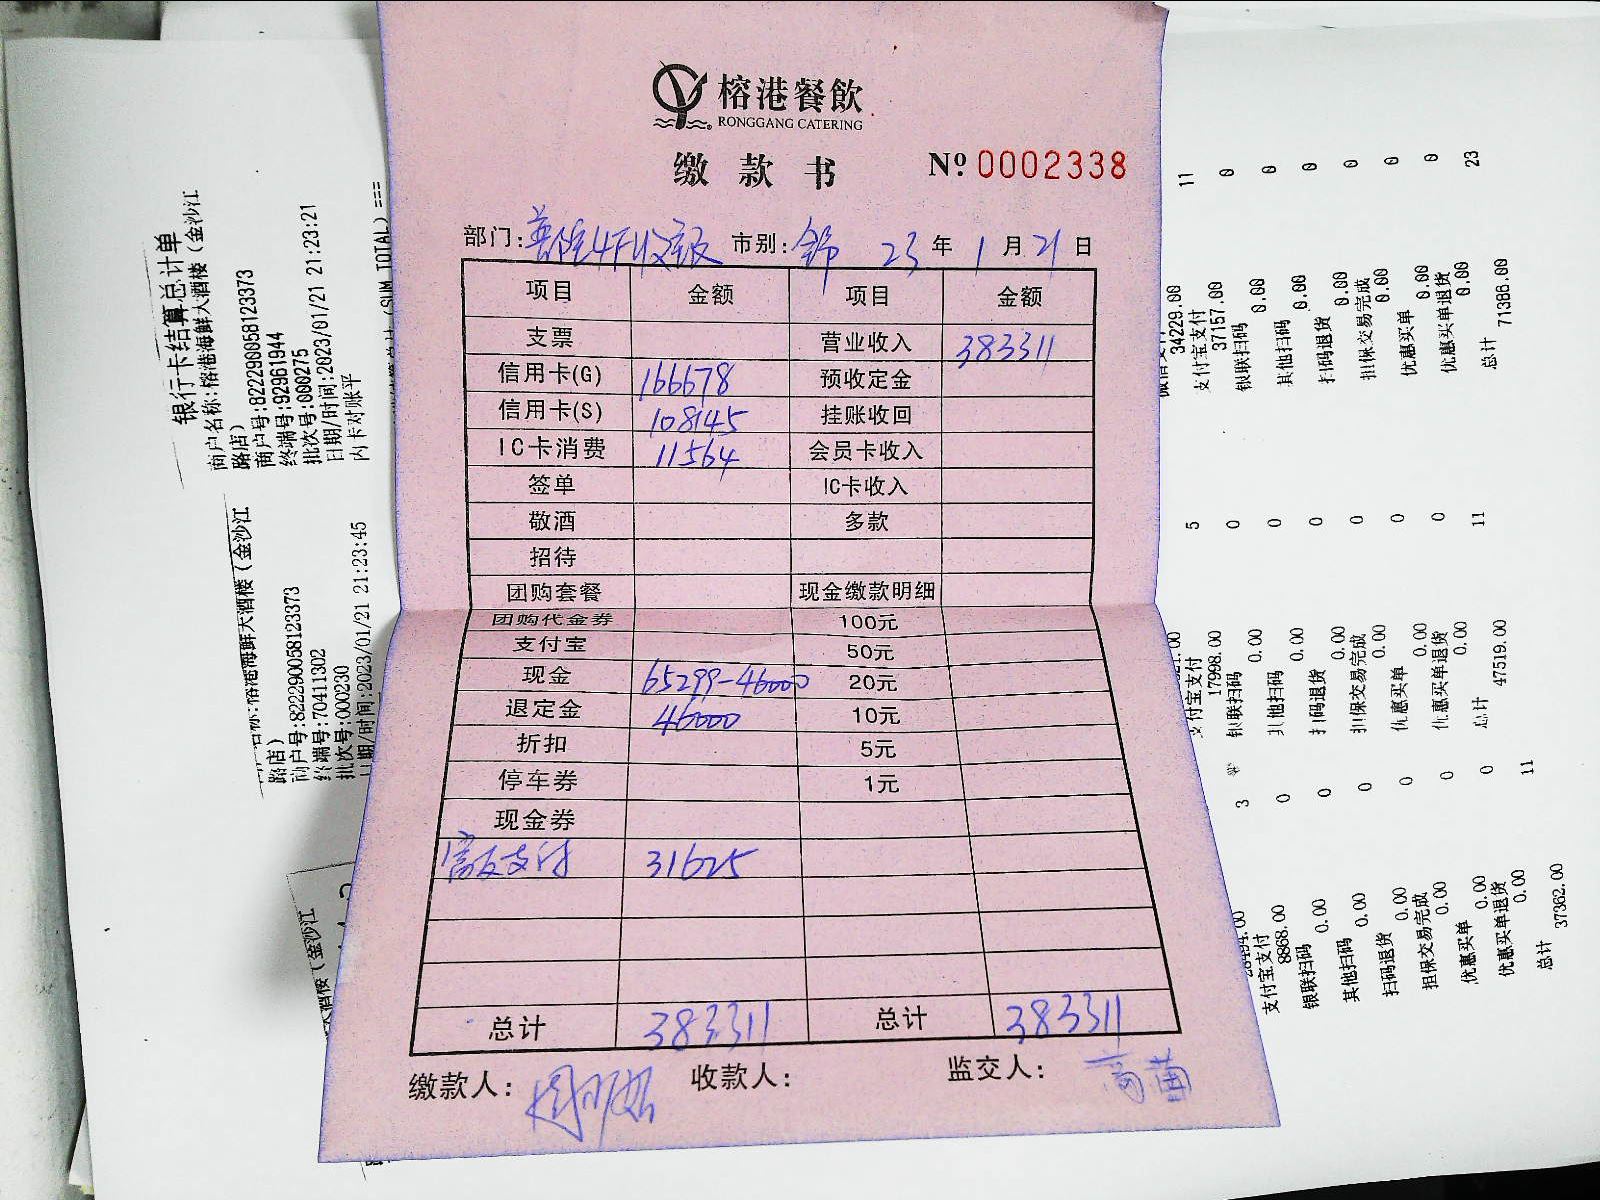 榕港餐飲
RONGGANG CATERING
缴款书 Nº 0002338
部门: 市别: 23 年 1 月 21 日
项目 金额 项目 金额
支票 营业收入 383311
信用卡(G) 166678 预收定金
信用卡(S) 108145 挂账收回
IC卡消费 11564 会员卡收入
签单 IC卡收入
敬酒 多款
招待
团购套餐 现金缴款明细
团购代金券 100元
支付宝 50元
现金 65299-46000 20元
退定金 46000 10元
折扣 5元
停车券 1元
现金券
支付 31625
总计 383311 总计 383311
缴款人: 收款人: 监交人:
银行卡结算总计单
商户名称:榕港海鲜大酒楼(金沙江
路店)
商户号:822290058123373
终端号:92961944
批次号:000275
日期/时间:2023/01/21 21:23:21
内卡对账平
(SUM TOTAL) ===
名称:榕港海鲜大酒楼(金沙江
路店)
商户号:822290058123373
终端号:70411302
批次号:000230
日期/时间:2023/01/21 21:23:45
大酒楼(金沙江
34229.00 11
支付宝支付
37157.00 0
银联扫码
0.00 0
其他扫码
0.00 0
扫码退货
0.00 0
担保交易完成
0.00 0
优惠买单
0.00 0
优惠买单退货
0.00
总计 23
71388.00
支付宝支付 5
17998.00
银联扫码 0
0.00
其他扫码 0
0.00
扫码退货 0
0.00
担保交易完成 0
0.00
优惠买单 0
0.00
优惠买单退货 0
0.00
总计 11
47519.00
支付宝支付 3
8868.00
银联扫码 0
0.00
其他扫码 0
0.00
扫码退货 0
0.00
担保交易完成 0
0.00
优惠买单 0
0.00
优惠买单退货 0
0.00
总计 11
37362.00